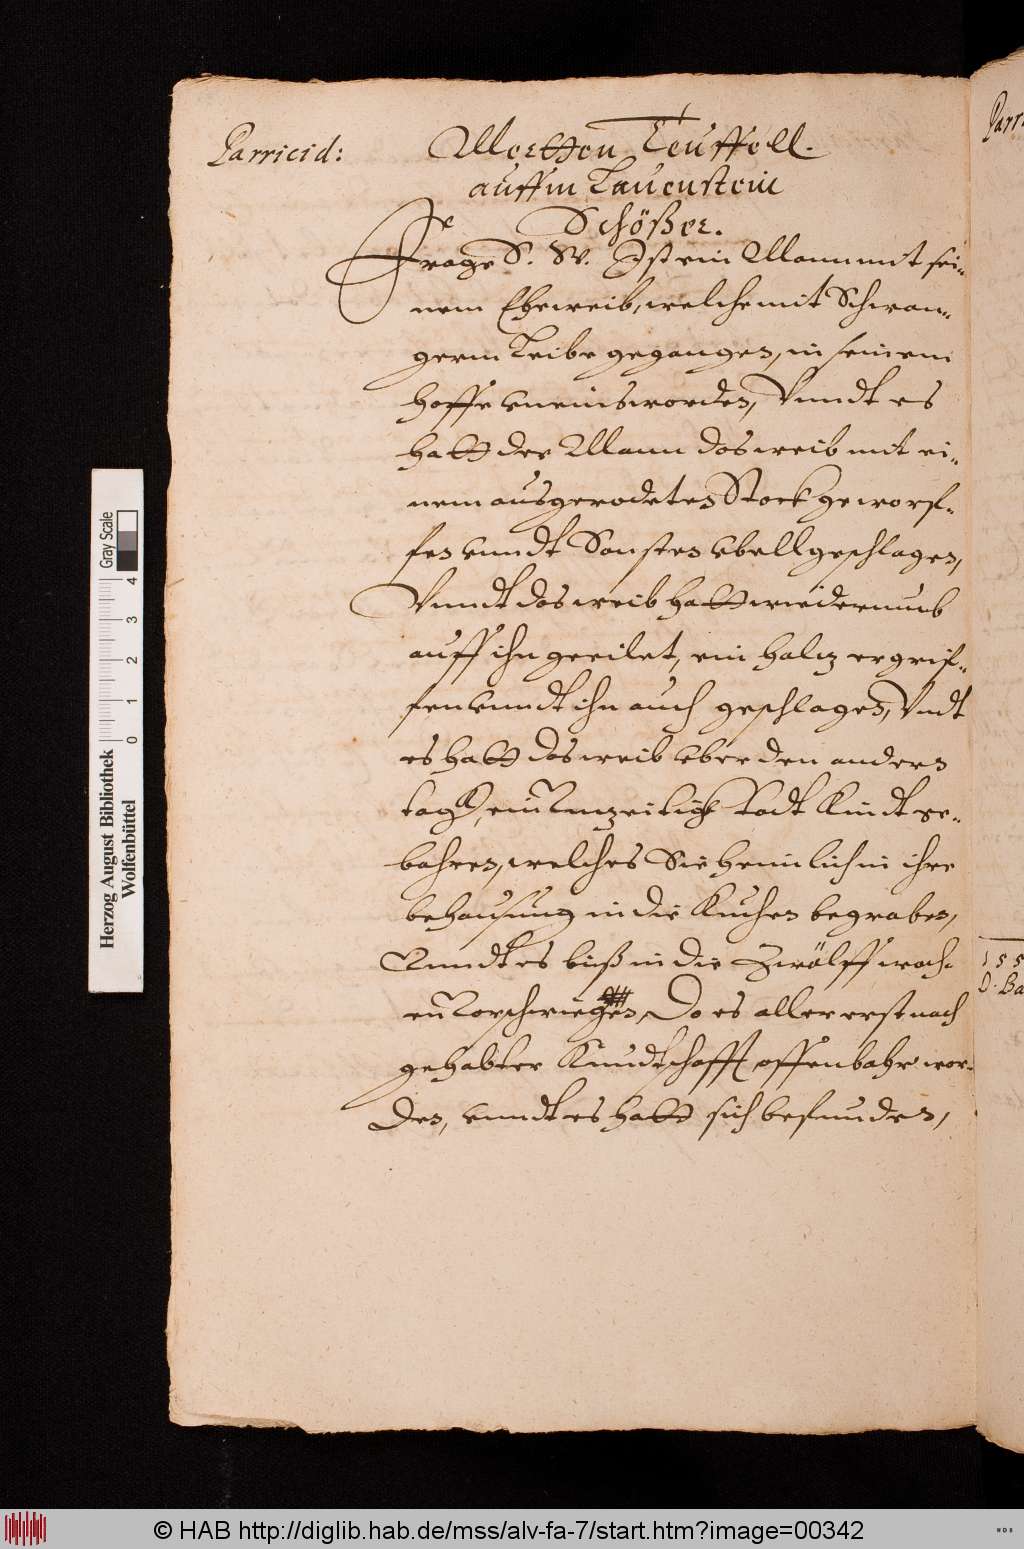 Parricid:
Mertten Teuffell.
auffm Lauenstein
Schößer.
Frage S. W. Ist ein Mann mit sei-
nem Eheweib, welche mit Schwan-
germ Leibe gegangen, in seinem
Hoffe vneins worden, Vnndt es
hatt der Mann das weib mit ei-
nem ausgerodeten Stock geworf-
fen vnndt Sonsten vbell geschlagen,
Vnndt das weib hatt wiederumb
auff ihn geeilet, ein Holtz ergrif-
fen vnndt ihn auch geschlagen, Vndt
es hatt das weib vber den andern
tagk, ein Vnzeitigk Todt Kindt ge-
bohren, welches Sie heimlich in ihre
behausung in die Kuchen begraben,
Vnndt es bieß in die Zwölff woch-
en Vorschwiegen, Do es aller erst nach
gehabter Kundtschafft offenbahr wor-
den, vnndt es hatt sich befunden,
Parr
155
D. Ba
Herzog August Bibliothek
Wolfenbüttel
0 1 2 3 4
Gray Scale
© HAB http://diglib.hab.de/mss/alv-fa-7/start.htm?image=00342